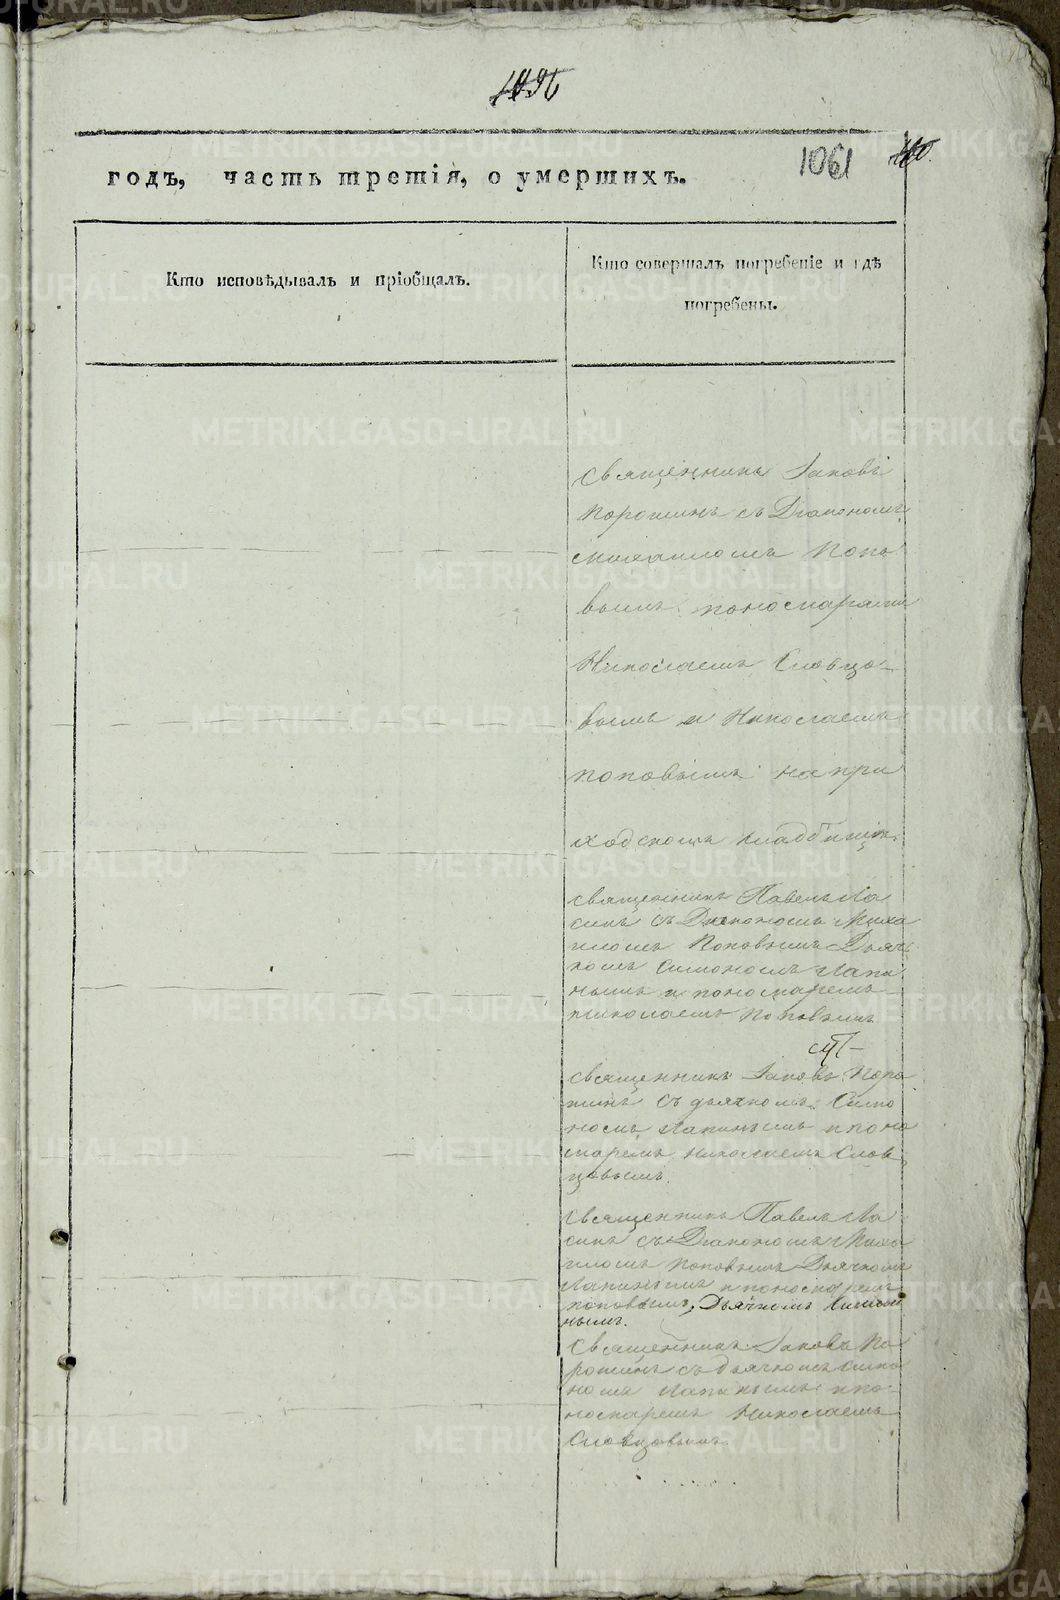 1061
годъ, часть третія, о умершихъ.
Кто исповѣдывалъ и пріобщалъ.
Кто совершалъ погребеніе и гдѣ
погребены.
священникъ Іаковъ
Порошинъ съ Діакономъ
Михаиломъ Попо
вымъ пономарями
Николаемъ Словцо
вымъ и Николаемъ
Поповымъ на при
ходскомъ кладбищѣ.
священникъ Павелъ Ла
съ Діакономъ Миха
иломъ Поповымъ Дьяч
комъ Симономъ Лапи
нымъ и пономаремъ
николаемъ Поповымъ
священникъ Іаковъ Поро
шинъ съ дьячкомъ Симо
номъ Лапинымъ и поно
маремъ Николаемъ Слов
цовымъ.
священникъ Павелъ Ла
съ Діакономъ Миха
иломъ Поповымъ Дьячкомъ
Лапинымъ и пономаремъ
поповымъ, Дьячкомъ
нымъ.
Священникъ Іаковъ По
рошинъ съ дьячкомъ Симо
номъ Лапинымъ и по
номаремъ Николаемъ
Словцовымъ.
METRIKI.GASO-URAL.RU